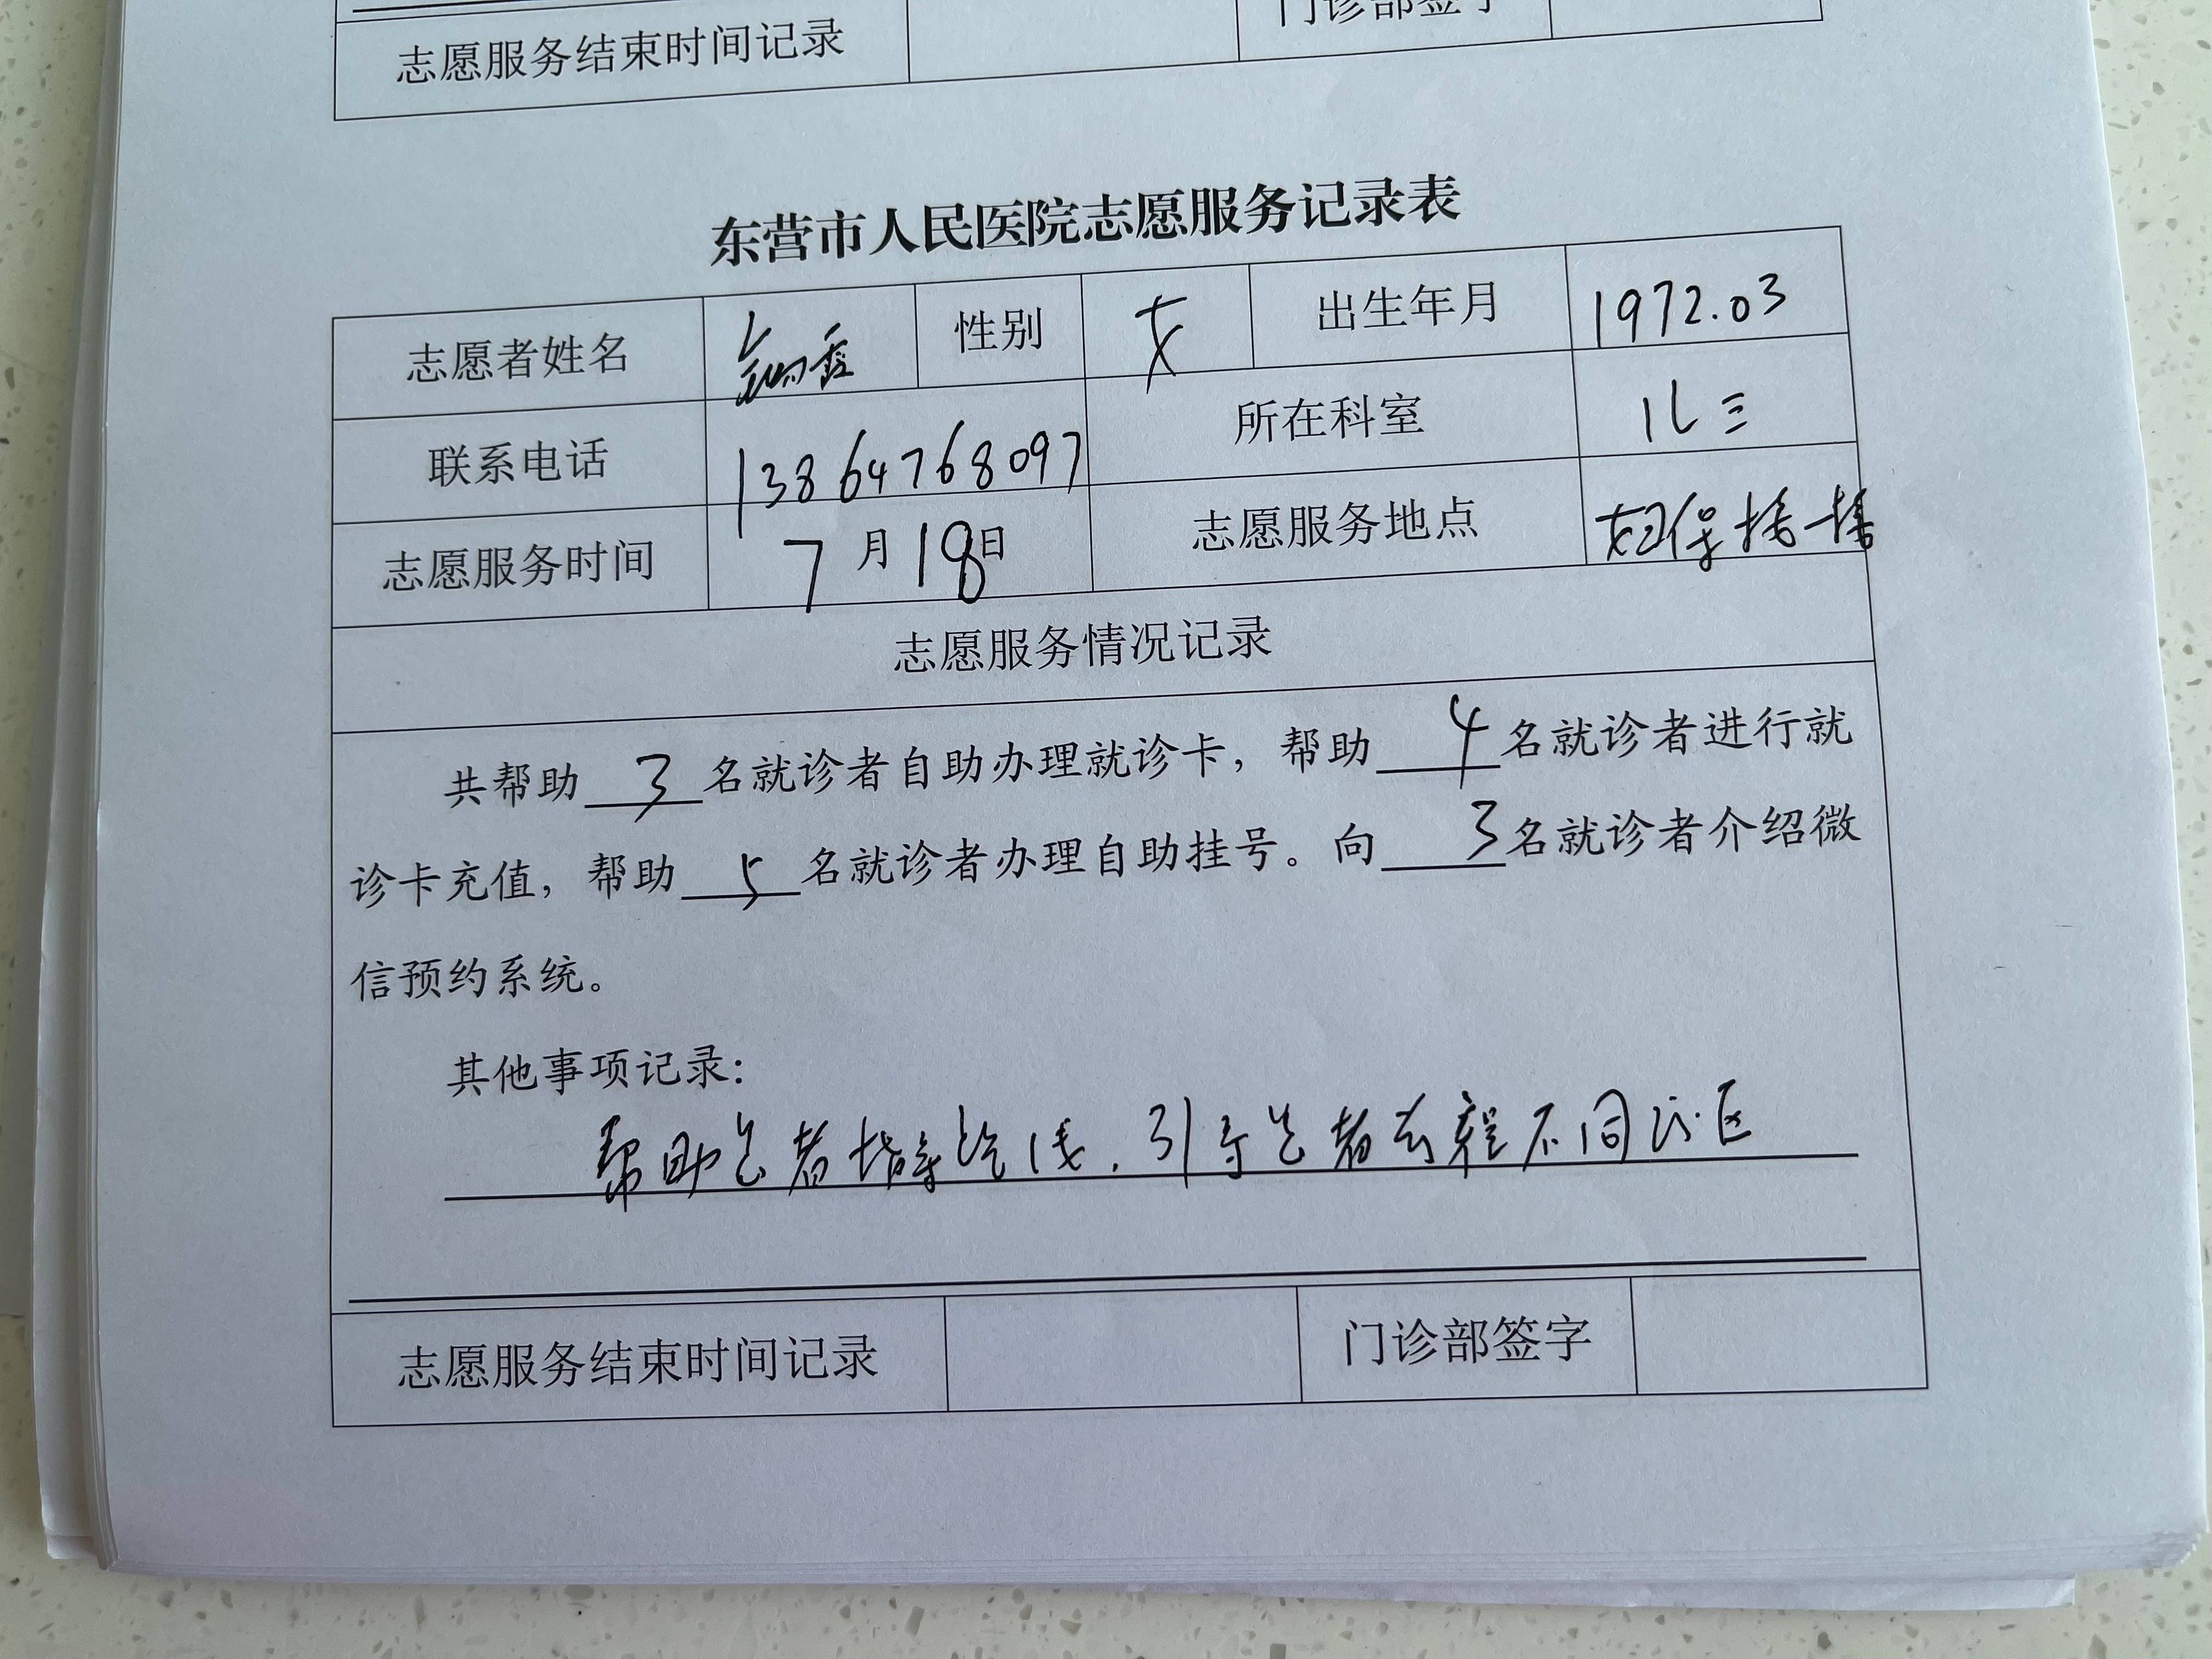 志愿服务结束时间记录 门诊部签字
东营市人民医院志愿服务记录表
志愿者姓名 性别 女 出生年月 1972.03
联系电话 13864768097 所在科室 儿三
志愿服务时间 7月18日 志愿服务地点 妇保
志愿服务情况记录
共帮助 3 名就诊者自助办理就诊卡，帮助 4 名就诊者进行就
诊卡充值，帮助 5 名就诊者办理自助挂号。向 3 名就诊者介绍微
信预约系统。
其他事项记录：
帮助患者指导 引导患者去 不同 区
志愿服务结束时间记录 门诊部签字